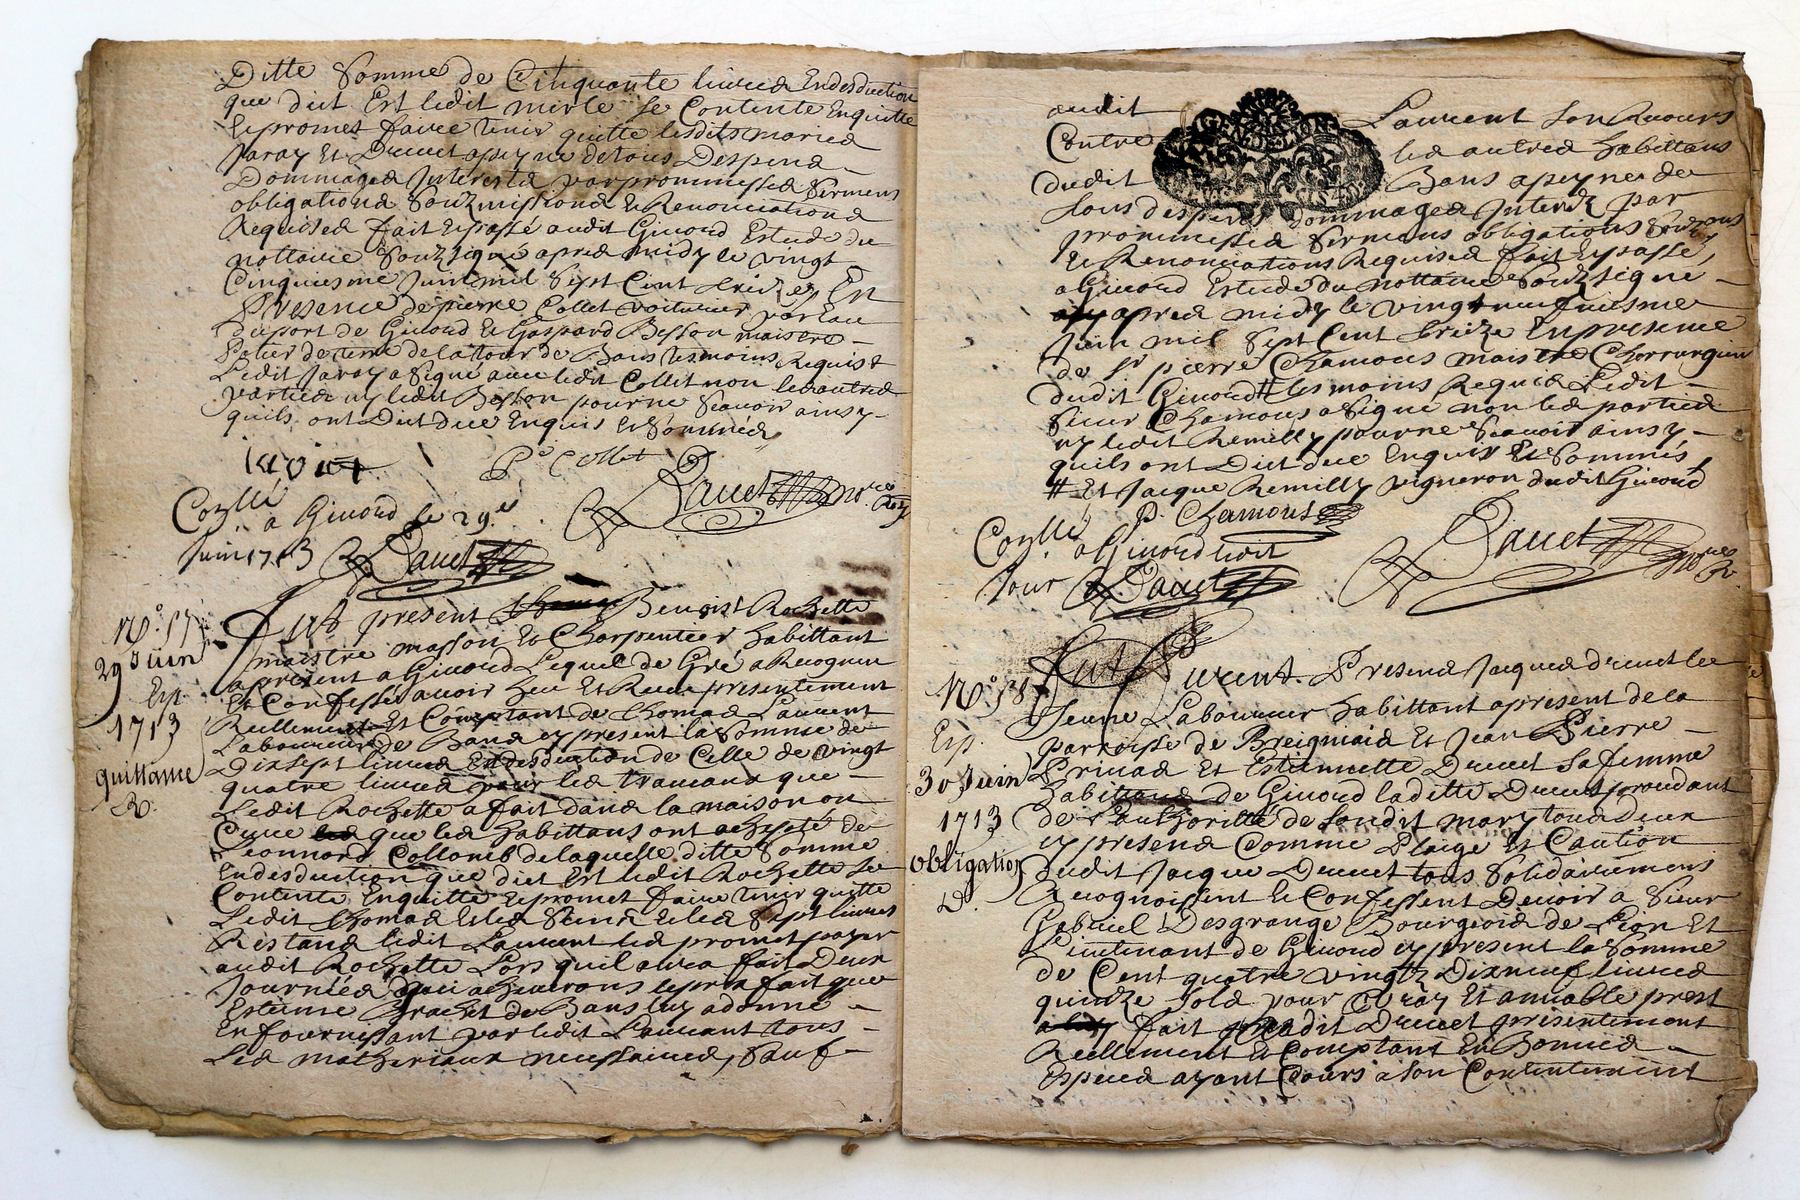 Ditte Somme de Cinquante livres Endesduction
que dict Est ledit merle se Contente Enquitte
Et promet faire tenir quitte lesdits mariés
Jaray Et Drevet apeyne detous Despens
Dommages Interests par prommesses Sermens
obligations Soubzmissions Et Renonciations
Requises fait Et passé audit Givord Estude du
nottaire Soubzsigné apres midy le vingt
Cinquiesme Juin mil Sept Cent treize En
Presence de pierre Collet voiturier par Eau
du port de Givord Et Gaspard Besson maistre
Potier de terre de la tour de Bans tesmoins Requis &
Ledit Jaray a Signé avec ledit Collet non les autres
parties ny ledit Besson pour ne Scavoir ainsy
quils ont Dict de ce Enquis Et Sommés
P. Collet
Conllé
a Givord le 29.e
Juin 1713
N.º 57
29 Juin
Exp.
1713
quittance
R.
Fut present Benoist Rochette
maistre masson Et Charpentier habittant
apresent a Givord Lequel de Gré a Recogneu
Et Confesse avoir Heu Et Receu presentement
Reellement Et Comptant de thomas Laurent
Laboureur de Bans cy present la Somme de
Dixsept livres En desduction de Celle de vingt
quatre livres pour les travaux que
Ledit Rochette a fait dans la maison ou
Cure que les habittans ont achepté de
Leonnard Collomb de laquelle ditte Somme
Endesduction que dict Est ledit Rochette Se
Contente Enquitte Et promet faire tenir quitte
Ledit thomas Et les Siens Et les Sept livres
Restans ledit Laurent les promet payer
audit Rochette Lors quil aura fait Deux
Journées qui acheverons le prix fait que
Estienne Brachet de Bans luy a donné
En fournissant par ledit Laurant tous
Les matheriaux necessaires, Sauf
audit Laurent Son Recours
Contre les autres habittans
dudit Bans apeyne de
tous despens dommages Interestz par
prommesses Sermens obligations
Et Renonciations Requises fait Et passé,
a Givord Estude du nottaire Soubzsigné
apres midy le vingt neufviesme
Juin mil Sept Cent treize En presence
de Sr pierre Chamous maistre Chirurgien
dudit Givord # tesmoins Requis Ledit
Sieur Chamous a Signé non les parties
ny ledit Remilly pour ne Scavoir ainsy
quils ont Dict de ce Enquis Et Sommés,
# Et Jacque Remilly vigneron dudit Givord
P. Chamous
Conllé
a Givord ledit
Jour
N.º 58
Exp.
30 Juin
1713
obligation
D.
Fut Furent Presens Jacques drevet le
Jeune Laboureur habittant apresent de la
parroisse de Breignais Et Jean Pierre
Privas Et Estiennette Drevet Sa femme
habittans de Givord laditte Drevet procedant
de l'authoritté de Sondit mary tous deux
cy presens Comme Plaige Et Caution
dudit Jacque Drevet tous Solidairement
Recognoissent Et Confessent Devoir a Sieur
Gabriel Desgrange Bourgeois de Lion Et
Lieutenant de Givord cy present la Somme
de Cent quatre vingtz Dixneuf livres
quinze Sols pour vray Et amiable prest
fait audit Drevet presentement
Reellement Et Comptant En Bonnes
Especes ayant Cours a son Contentement